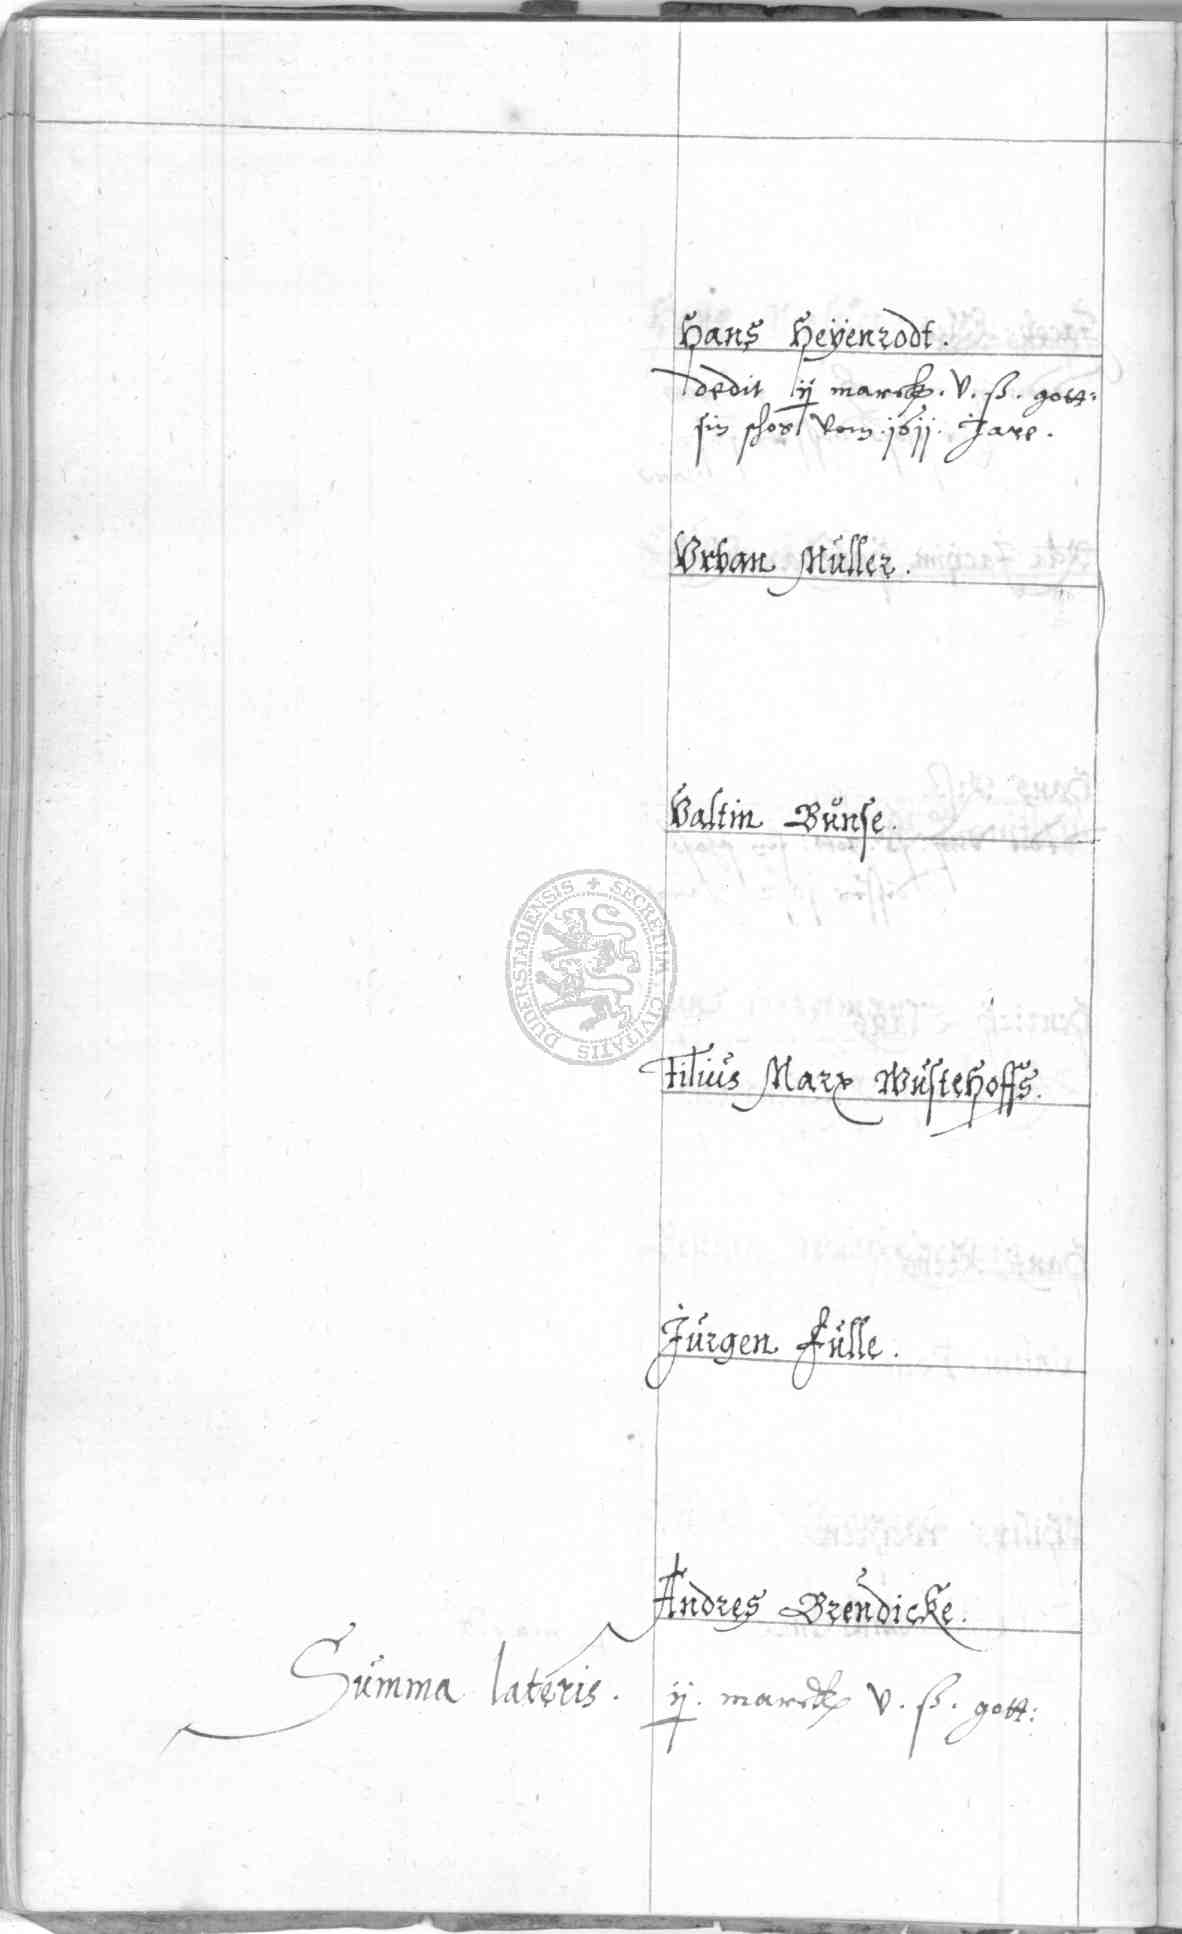 Hans Heÿenrodt.
dedit ij marck. v. ß. gott:
sin schos vom .1611. Jare.
Vrban Müller.
Valtin Bünse.
SECRETUM CIVITATIS DUDERSTADIENSIS
Filius Marx Wüstehoffs.
Jürgen Fülle.
Andres Brendicke.
Summa lateris. ij. marck v. ß. gott: